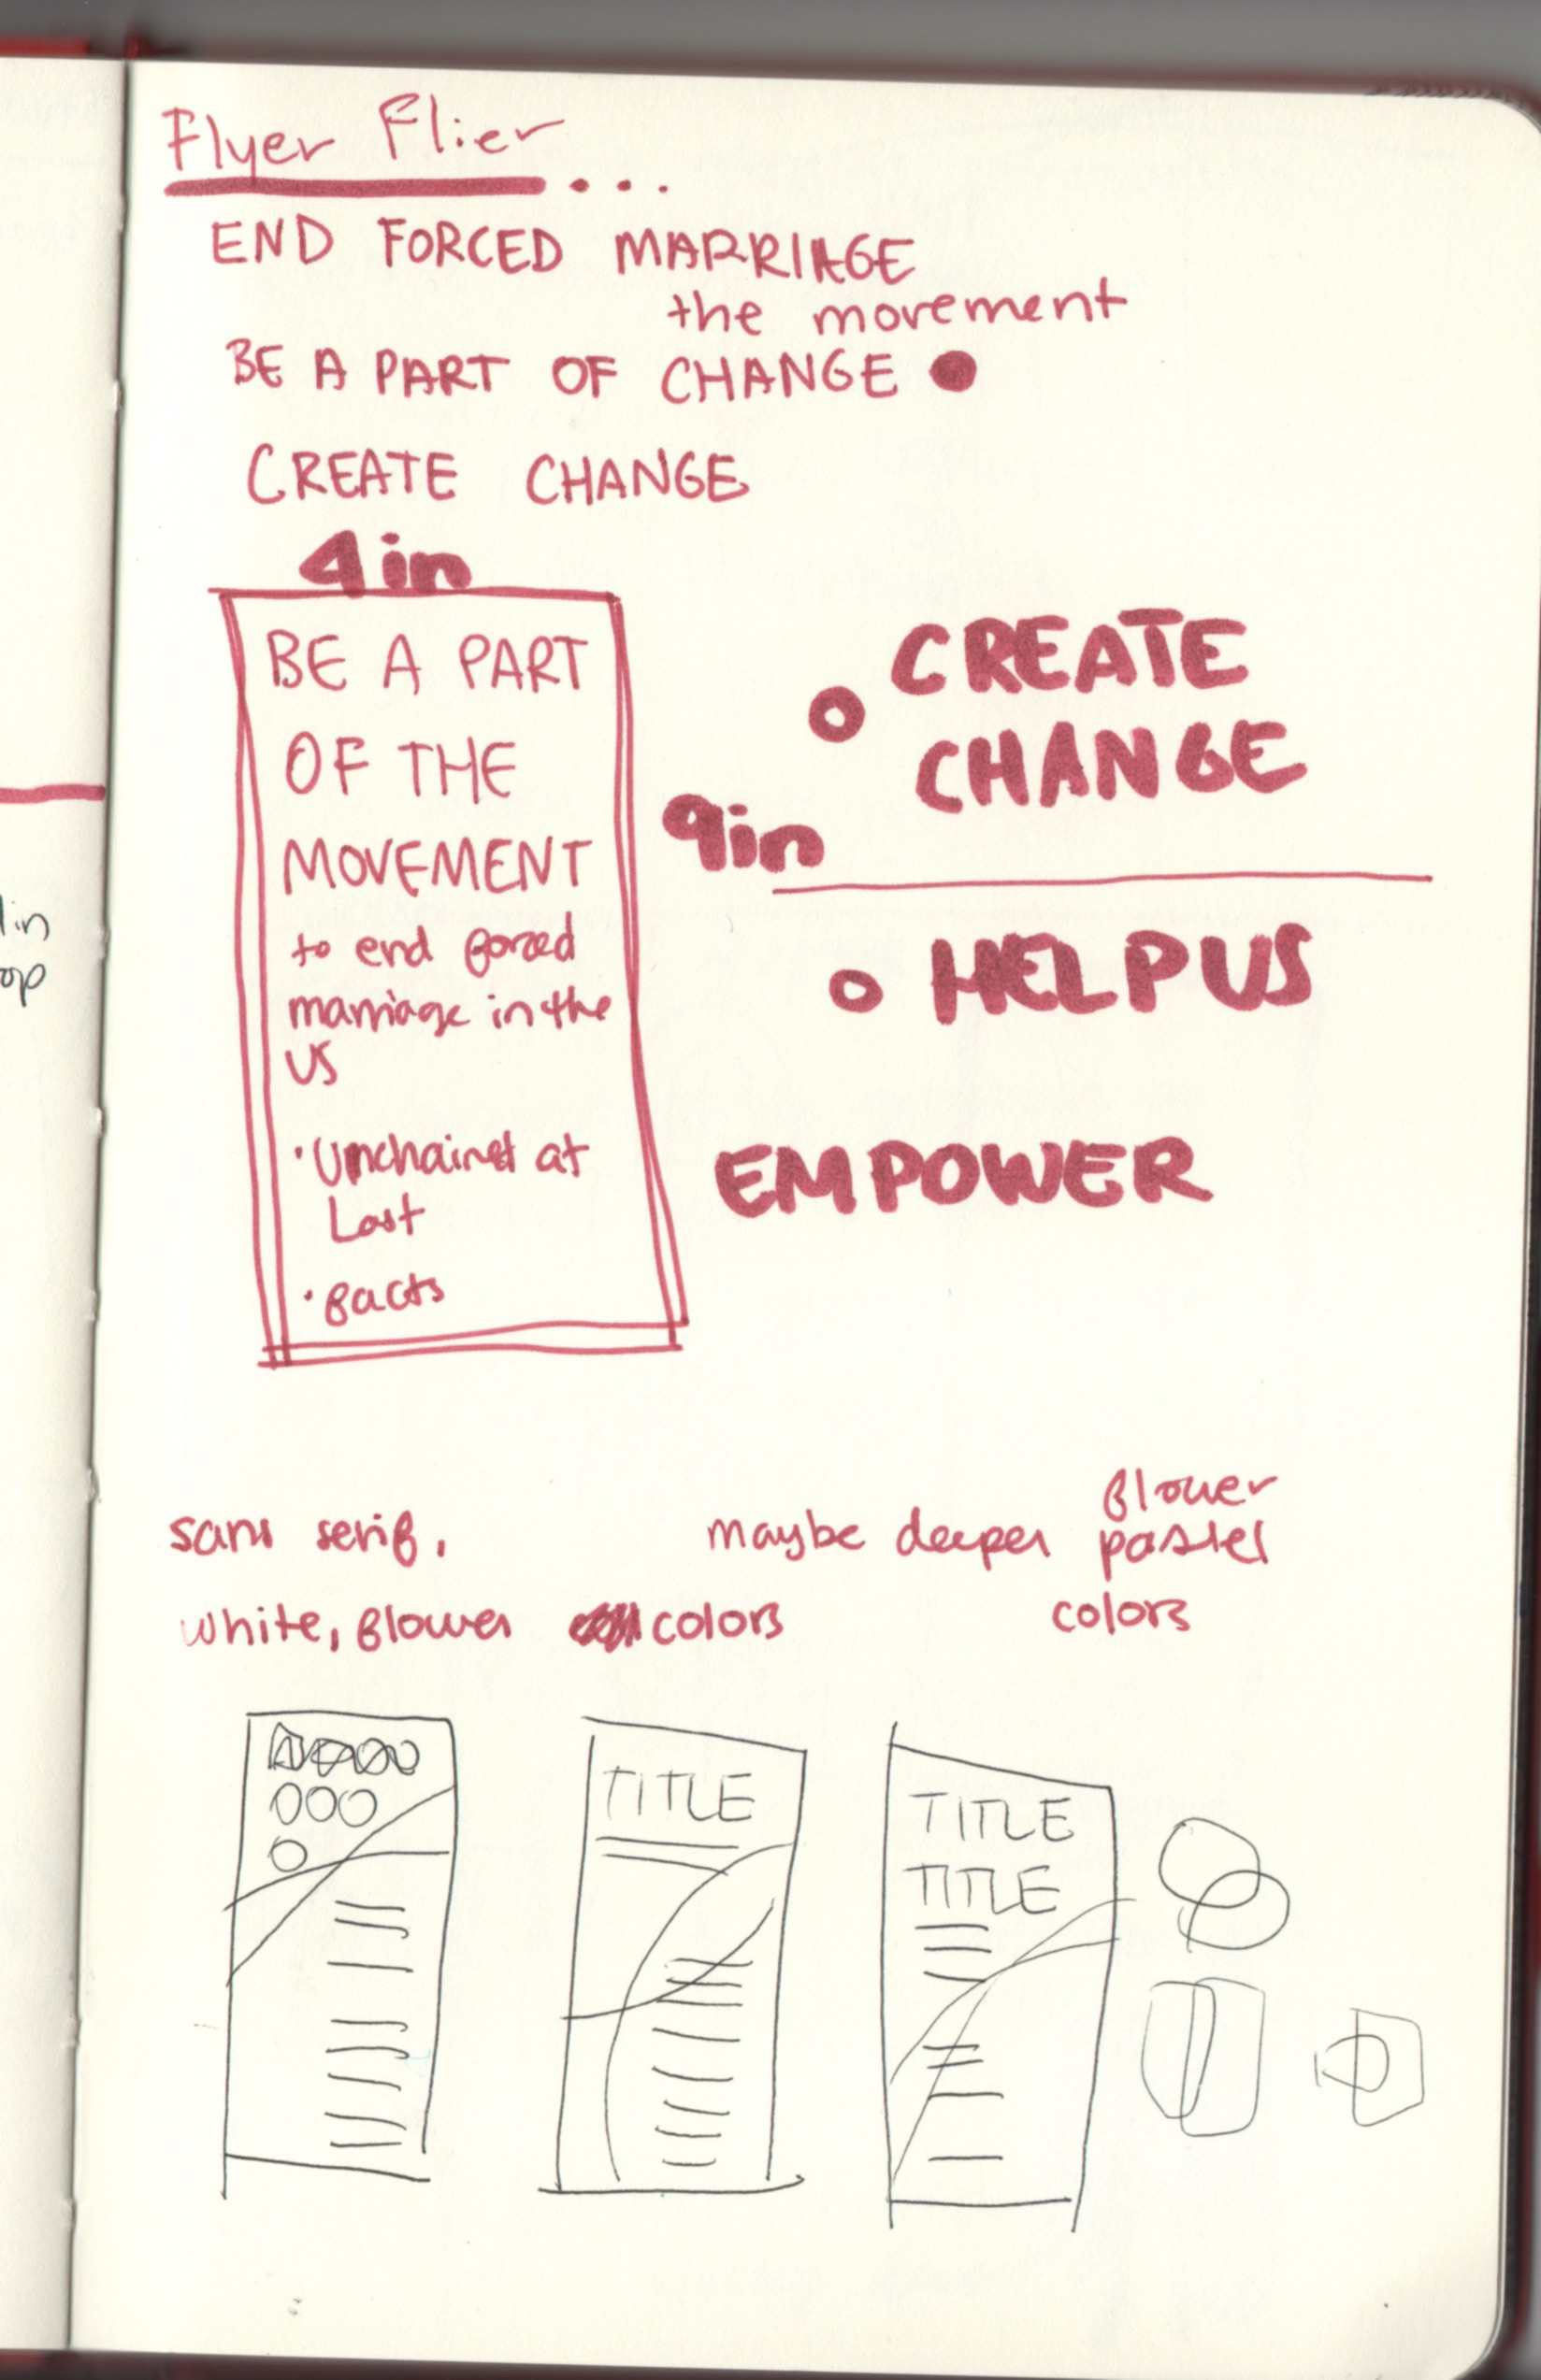 Flyer Flier
END FORCED MARRIAGE
the movement
BE A PART OF CHANGE
CREATE CHANGE
4in
BE A PART
OF THE
MOVEMENT
to end forced
marriage in the
US
• Unchained at
Last
• facts
9in
CREATE
CHANGE
HELP US
EMPOWER
sans serif,
white, flower colors
maybe deeper flower
pastel
colors
TITLE
TITLE
TITLE
lin
op